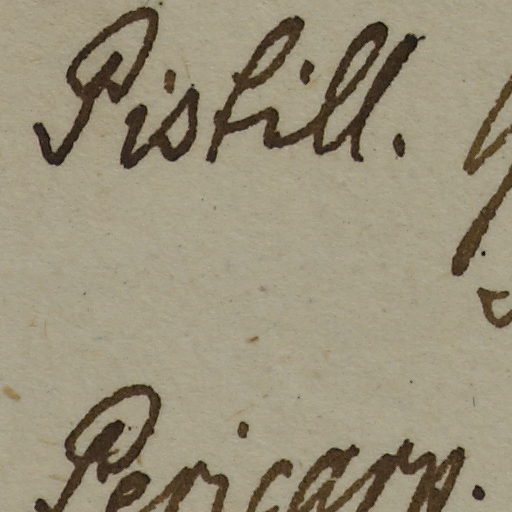 Pistill.
Pericarp.